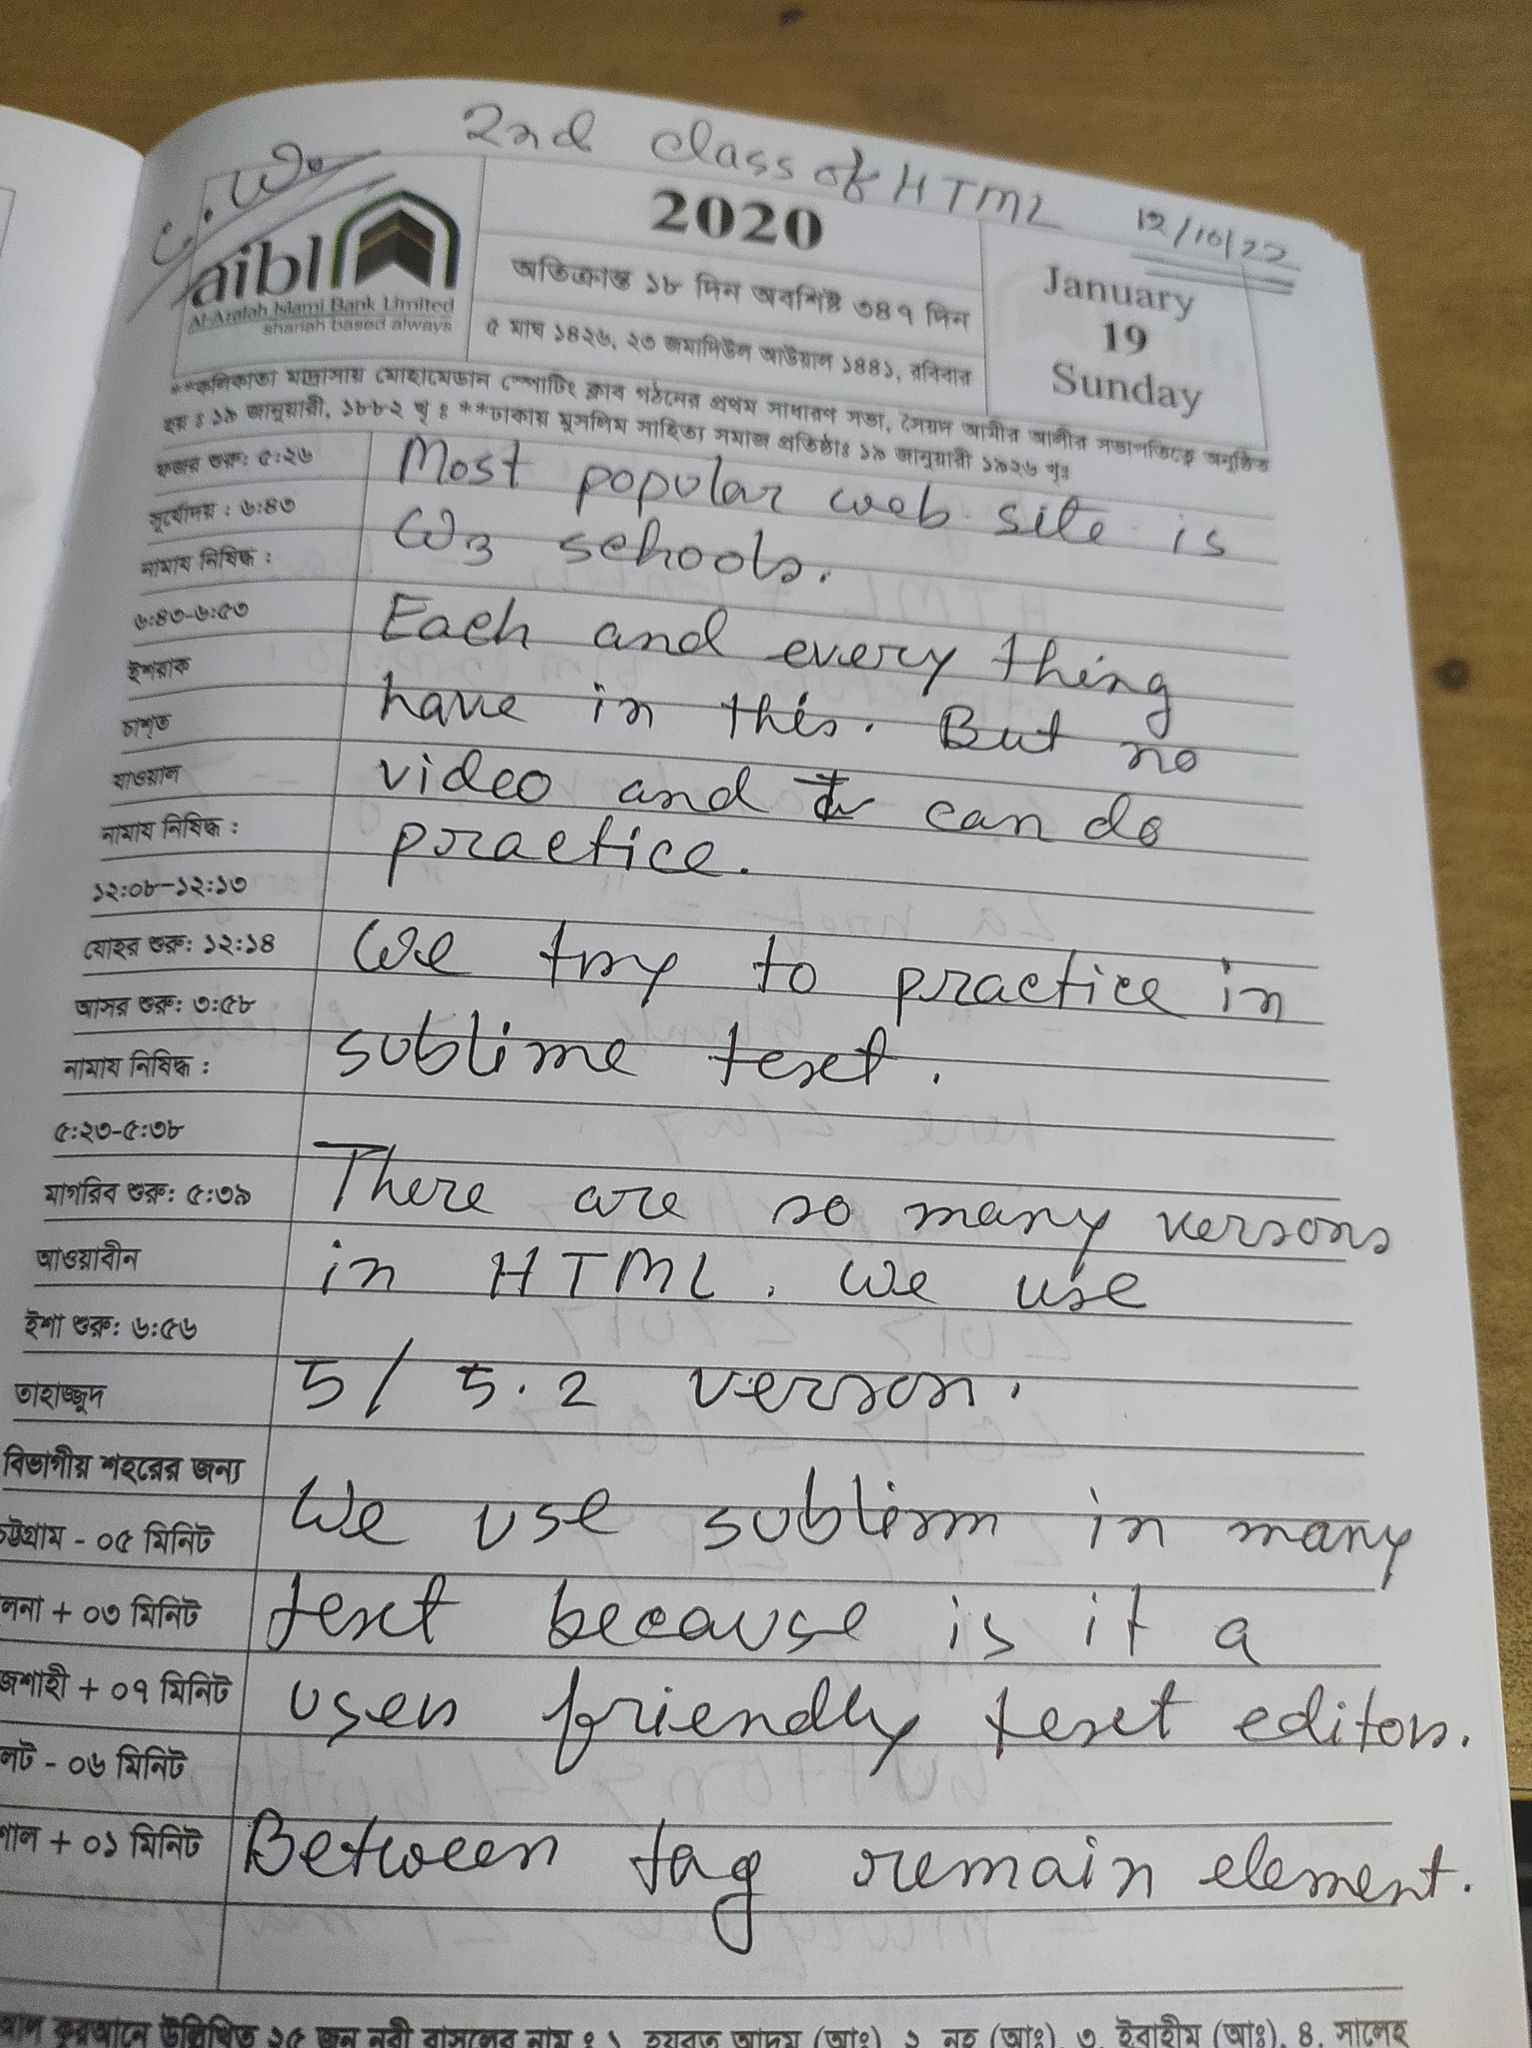 2nd class of HTML
12/10/22
C.W.
aibl
Al-Arafah Islami Bank Limited
shariah based always
2020
অতিক্রান্ত ১৮ দিন অবশিষ্ট ৩৪৭ দিন
৫ মাঘ ১৪২৬, ২৩ জমাদিউল আউয়াল ১৪৪১, রবিবার
January
19
Sunday
**কলিকাতা মাদ্রাসায় মোহামেডান স্পোটিং ক্লাব গঠনের প্রথম সাধারণ সভা, সৈয়দ আমীর আলীর সভাপতিত্বে অনুষ্ঠিত
হয় ঃ ১৯ জানুয়ারী, ১৮৮২ খৃ ঃ **ঢাকায় মুসলিম সাহিত্য সমাজ প্রতিষ্ঠাঃ ১৯ জানুয়ারী ১৯২৬ খৃঃ
ফজর শুরু: ৫:২৬
সূর্যোদয় : ৬:৪৩
নামায নিষিদ্ধ :
৬:৪৩-৬:৫৩
ইশরাক
চাশ্‌ত
যাওয়াল
নামায নিষিদ্ধ :
১২:০৮-১২:১৩
যোহর শুরু: ১২:১৪
আসর শুরু: ৩:৫৮
নামায নিষিদ্ধ :
৫:২৩-৫:৩৮
মাগরিব শুরু: ৫:৩৯
আওয়াবীন
ইশা শুরু: ৬:৫৬
তাহাজ্জুদ
বিভাগীয় শহরের জন্য
চট্টগ্রাম - ০৫ মিনিট
লনা + ০৩ মিনিট
জশাহী + ০৭ মিনিট
লট - ০৬ মিনিট
শাল + ০১ মিনিট
Most popular web site is
W3 schools.
Each and every thing
have in this. But no
video and can do
practice.
We try to practice in
sublime text.
There are so many versons
in HTML. We use
5/ 5.2 verson.
We use sublim in many
text because is it a
user friendly text editor.
Between tag remain element.
আল কুরআনে উল্লিখিত ২৫ জন নবী রাসূলের নাম ঃ ১. হযরত আদম (আঃ), ২. নূহ (আঃ), ৩. ইবাহীম (আঃ), ৪. সালেহ